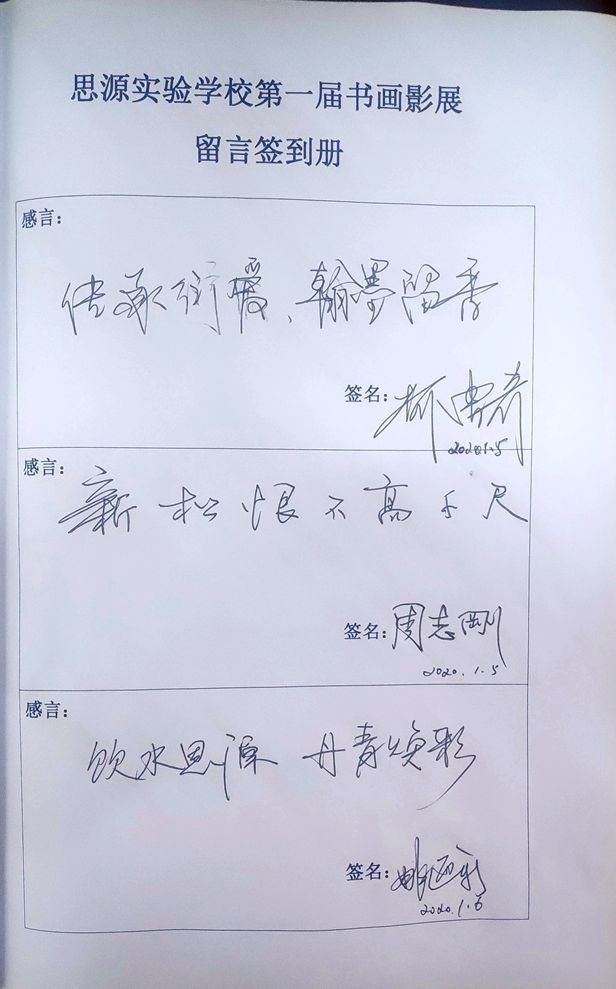 思源实验学校第一届书画影展
留言签到册
感言：
传承衍、翰墨留香
签名：
2020 1.5
感言：
新松恨不高千尺
签名：周志刚
2020.1.5
感言：
饮水思源 丹青焕彩
签名：
2020.1.6